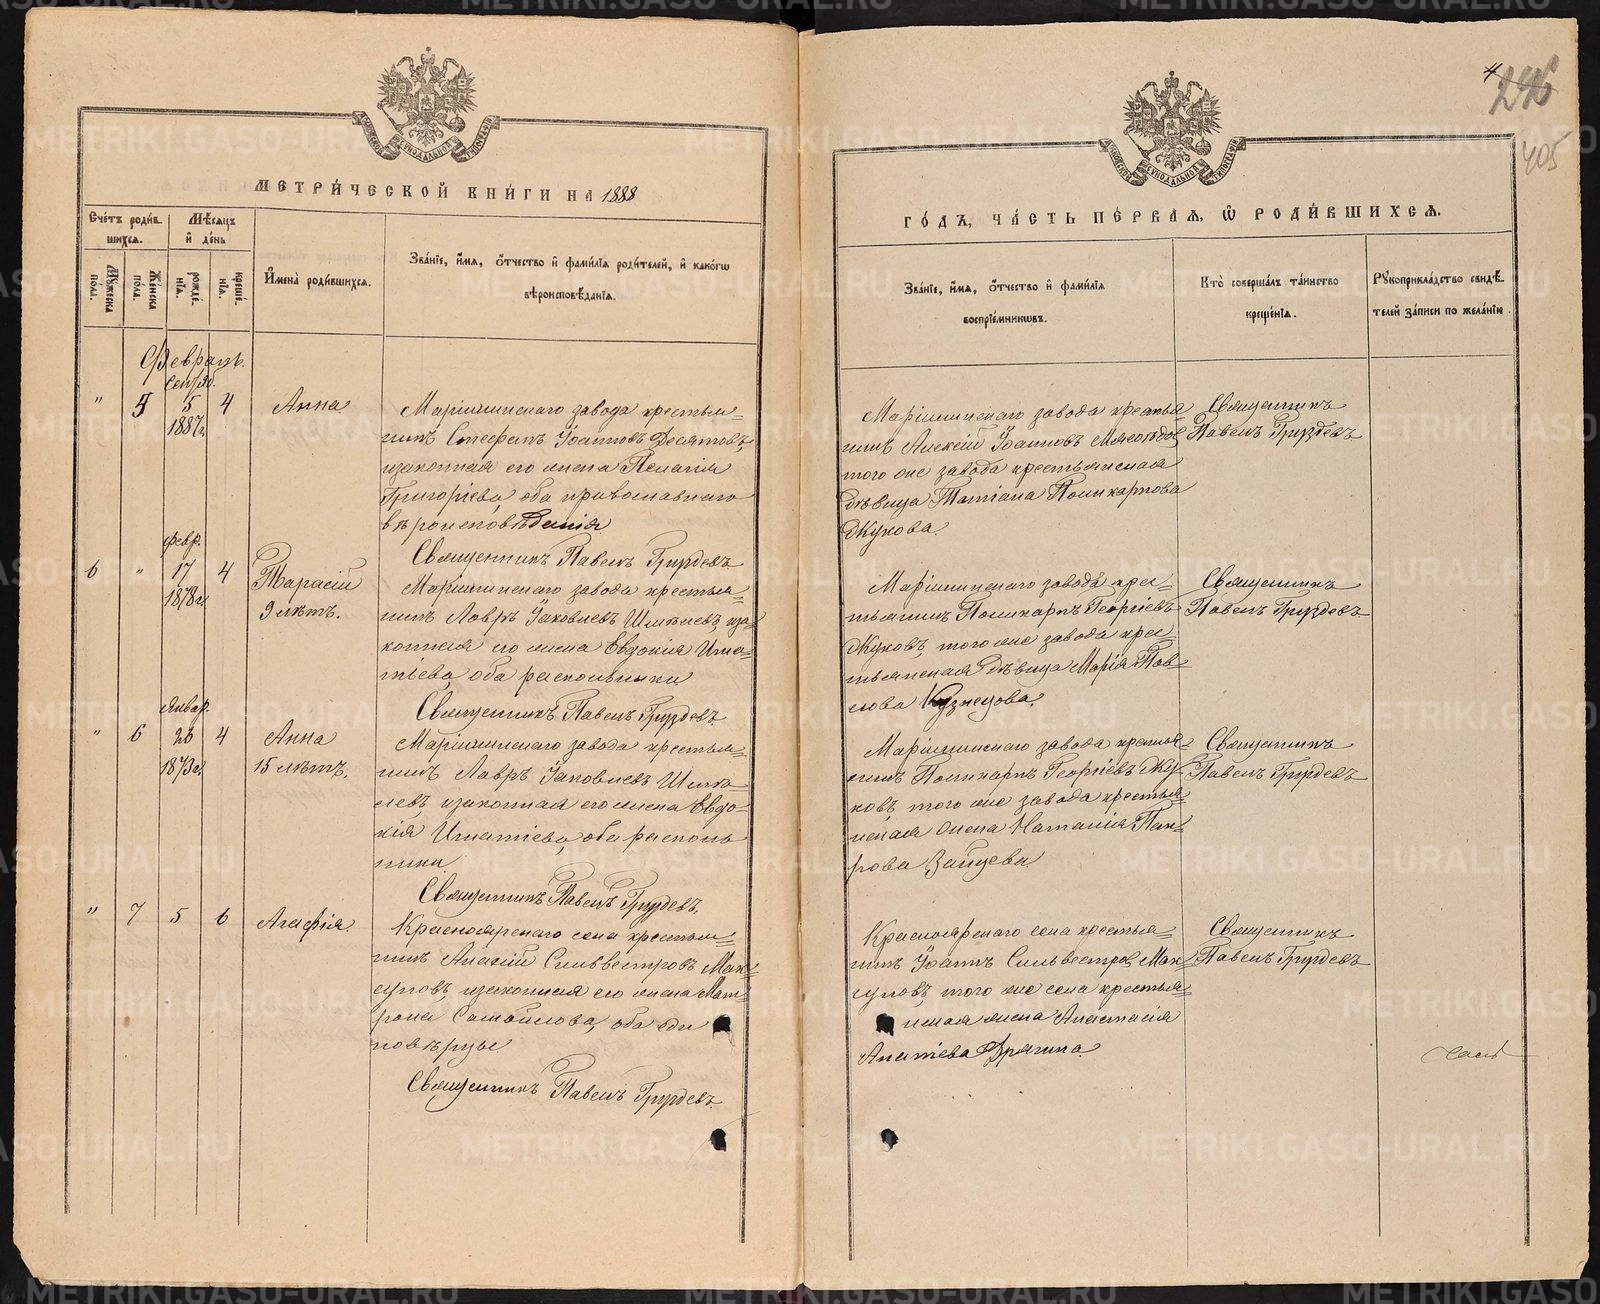 4
226
405
МЕТРИ́ЧЕСКОЙ КНИ́ГИ НА 1888
Сче́тъ роди́в
шихсѧ.
Мѣсѧцъ
и҆ де́нь
Мꙋ́жеска
по́ла.
Же́нска
по́ла.
рожде́
нїѧ.
креще́
нїѧ.
И҆мена̀ роди́вшихсѧ.
Зва́нїе, и҆́мѧ, ѻ҆́тчество и҆ фами́лїѧ роди́телей, и҆ како́гѡ
вѣроисповѣ́данїѧ.
Февраль.
Сентяб.
"
5
5
1887 г.
4
Анна
Маріинскаго завода крестья=
нинъ Стефанъ Іоанновъ Десятовъ,
и законная его жена Пелагія
Григоріева, оба православнаго
вѣроисповѣданія
Священникъ Павелъ Груздевъ
февр.
6
"
17
1878 г.
4
Тарасій
9 лѣтъ.
Маріинскаго завода крестья=
нинъ Лавръ Іаковлевъ и за=
конная его жена Евдокія Игна=
тіева, оба раскольники
Священникъ Павелъ Груздевъ.
январ.
"
6
26
1873 г.
4
Анна
15 лѣтъ.
Маріинскаго завода крестья=
нинъ Лавръ Іаковлевъ
и законная его жена Евдо=
кія Игнатіева, оба расколь
ники.
Священникъ Павелъ Груздевъ.
"
7
5
6
Агафія.
Красноярскаго села крестья=
нинъ Алексій Сильвестровъ Мак=
суновъ, и законная его жена Мат=
рона Самойлова, оба еди
новѣрцы
Священникъ Павелъ Груздевъ.
ГО́ДЪ, ЧА́СТЬ ПЕ́РВАѦ, Ѡ҆ РОДИ́ВШИХСѦ.
Зва́нїе, и҆́мѧ, ѻ҆́тчество и҆ фами́лїѧ
воспрїе́мникѡвъ.
Кто̀ соверша́лъ та́инство
креще́нїѧ.
Рꙋкоприкла́дство свидѣ́
телей за́писи по жела́нїю.
Маріинскаго завода крестья
нинъ Алексій Іоанновъ Мясоѣдов
того же завода крестьянская
дѣвица Татіана Поликарпова
Жукова.
Священникъ
Павелъ Груздевъ
Маріинскаго завода крес=
тьянинъ Поликарпъ Георгіевъ
Жуковъ, того же завода крес=
тьянская дѣвица Марія Пав=
лова Кузнецова.
Священникъ
Павелъ Груздевъ.
Маріинскаго завода крестья=
нинъ Поликарпъ Георгіевъ Жу=
ковъ, того же завода крестья=
нская жена Наталія Пак=
рова Зайцева
Священникъ
Павелъ Груздевъ
Красноярскаго села крестья=
нинъ Іоаннъ Сильвестров Мак=
суновъ того же села крестья=
нская жена Анастасія
Игнатіева Драгина.
Священникъ
Павелъ Груздевъ
METRIKI.GASO-URAL.RU